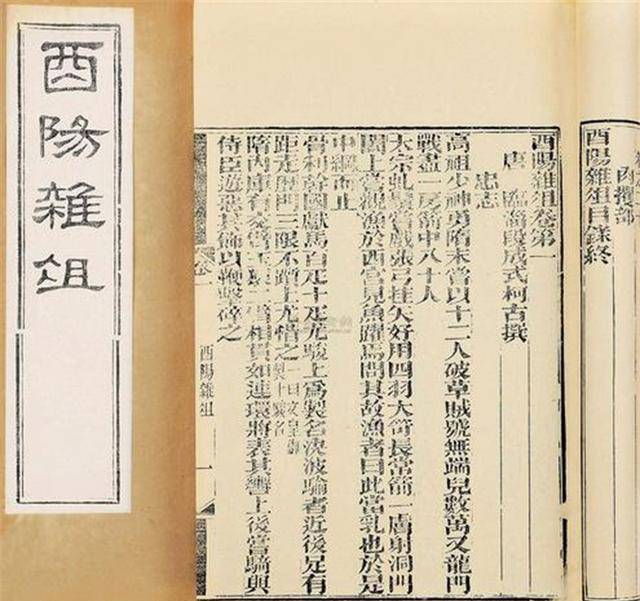 酉陽雜俎
肉攫部
酉陽雜俎目錄終
酉陽雜俎卷第一
唐 臨淄段成式柯古撰
忠志
高祖少神勇隋末嘗以十二人破草賊號無端兒數萬又龍門
戰盡一房箭中八十人
太宗虬鬚嘗戲張弓挂矢好用四羽大笴長常箭一膚射洞門
闔上嘗觀漁於西宮見魚躍焉問其故漁者曰此當乳也於是
中網而止
骨利幹國獻馬百疋十疋尤駿上爲製名決波騟者近後足有
距走歷門三限不躓上尤惜之
隋內庫有交臂玉猿二臂相貫如連環將表其轡上後嘗騎與
侍臣遊惡其飾以鞭擊碎之
酉陽雜俎 一